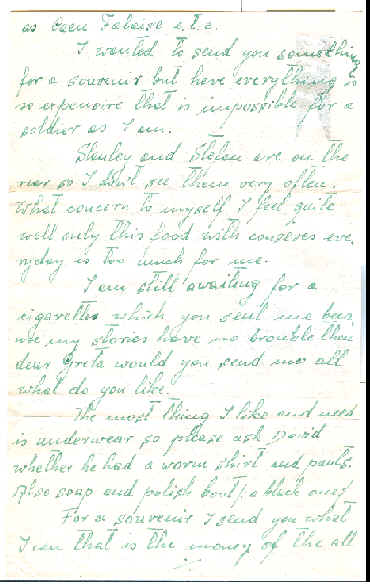 as Caen Falaise e.t.c.
I wanted to send you something
for a souvenir but have everything is
so expensive that is impossible for a
soldier as I am.
Stanley and Stefen are on the
rear so I don't see them very often.
What concern to myself I feel quite
well only this food with conserves eve
ryday is too much for me.
I am still awaiting for a
cigarettes which you sent me
my stories have me
dear Greta would you send me all
what do you like.
The most thing I like and need
is underwear so please ask David
whether he had a warm shirt and pants.
Also soap and polish boot / a black one /
For a souvenir I send you what
I can that is the money of the all